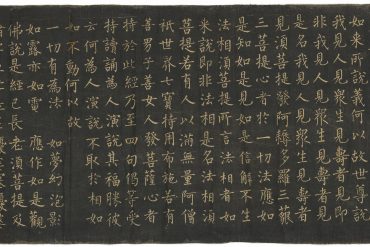 如來所說義何以故世尊說
我見人見眾生見壽者見即
非我見人見眾生見壽者見
是名我見人見眾生見壽者
見須菩提發阿耨多羅三藐
三菩提心者於一切法應如
是知如是見如是信解不生
法相須菩提所言法相者如
來說即非法相是名法相須
菩提若有人以滿無量阿僧
祇世界七寶持用布施若有
善男子善女人發菩薩心者
持於此經乃至四句偈等受
持讀誦為人演說其福勝彼
云何為人演說不取於相如
如不動何以故
一切有為法 如夢幻泡影
如露亦如電 應作如是觀
佛說是經已長老須菩提及